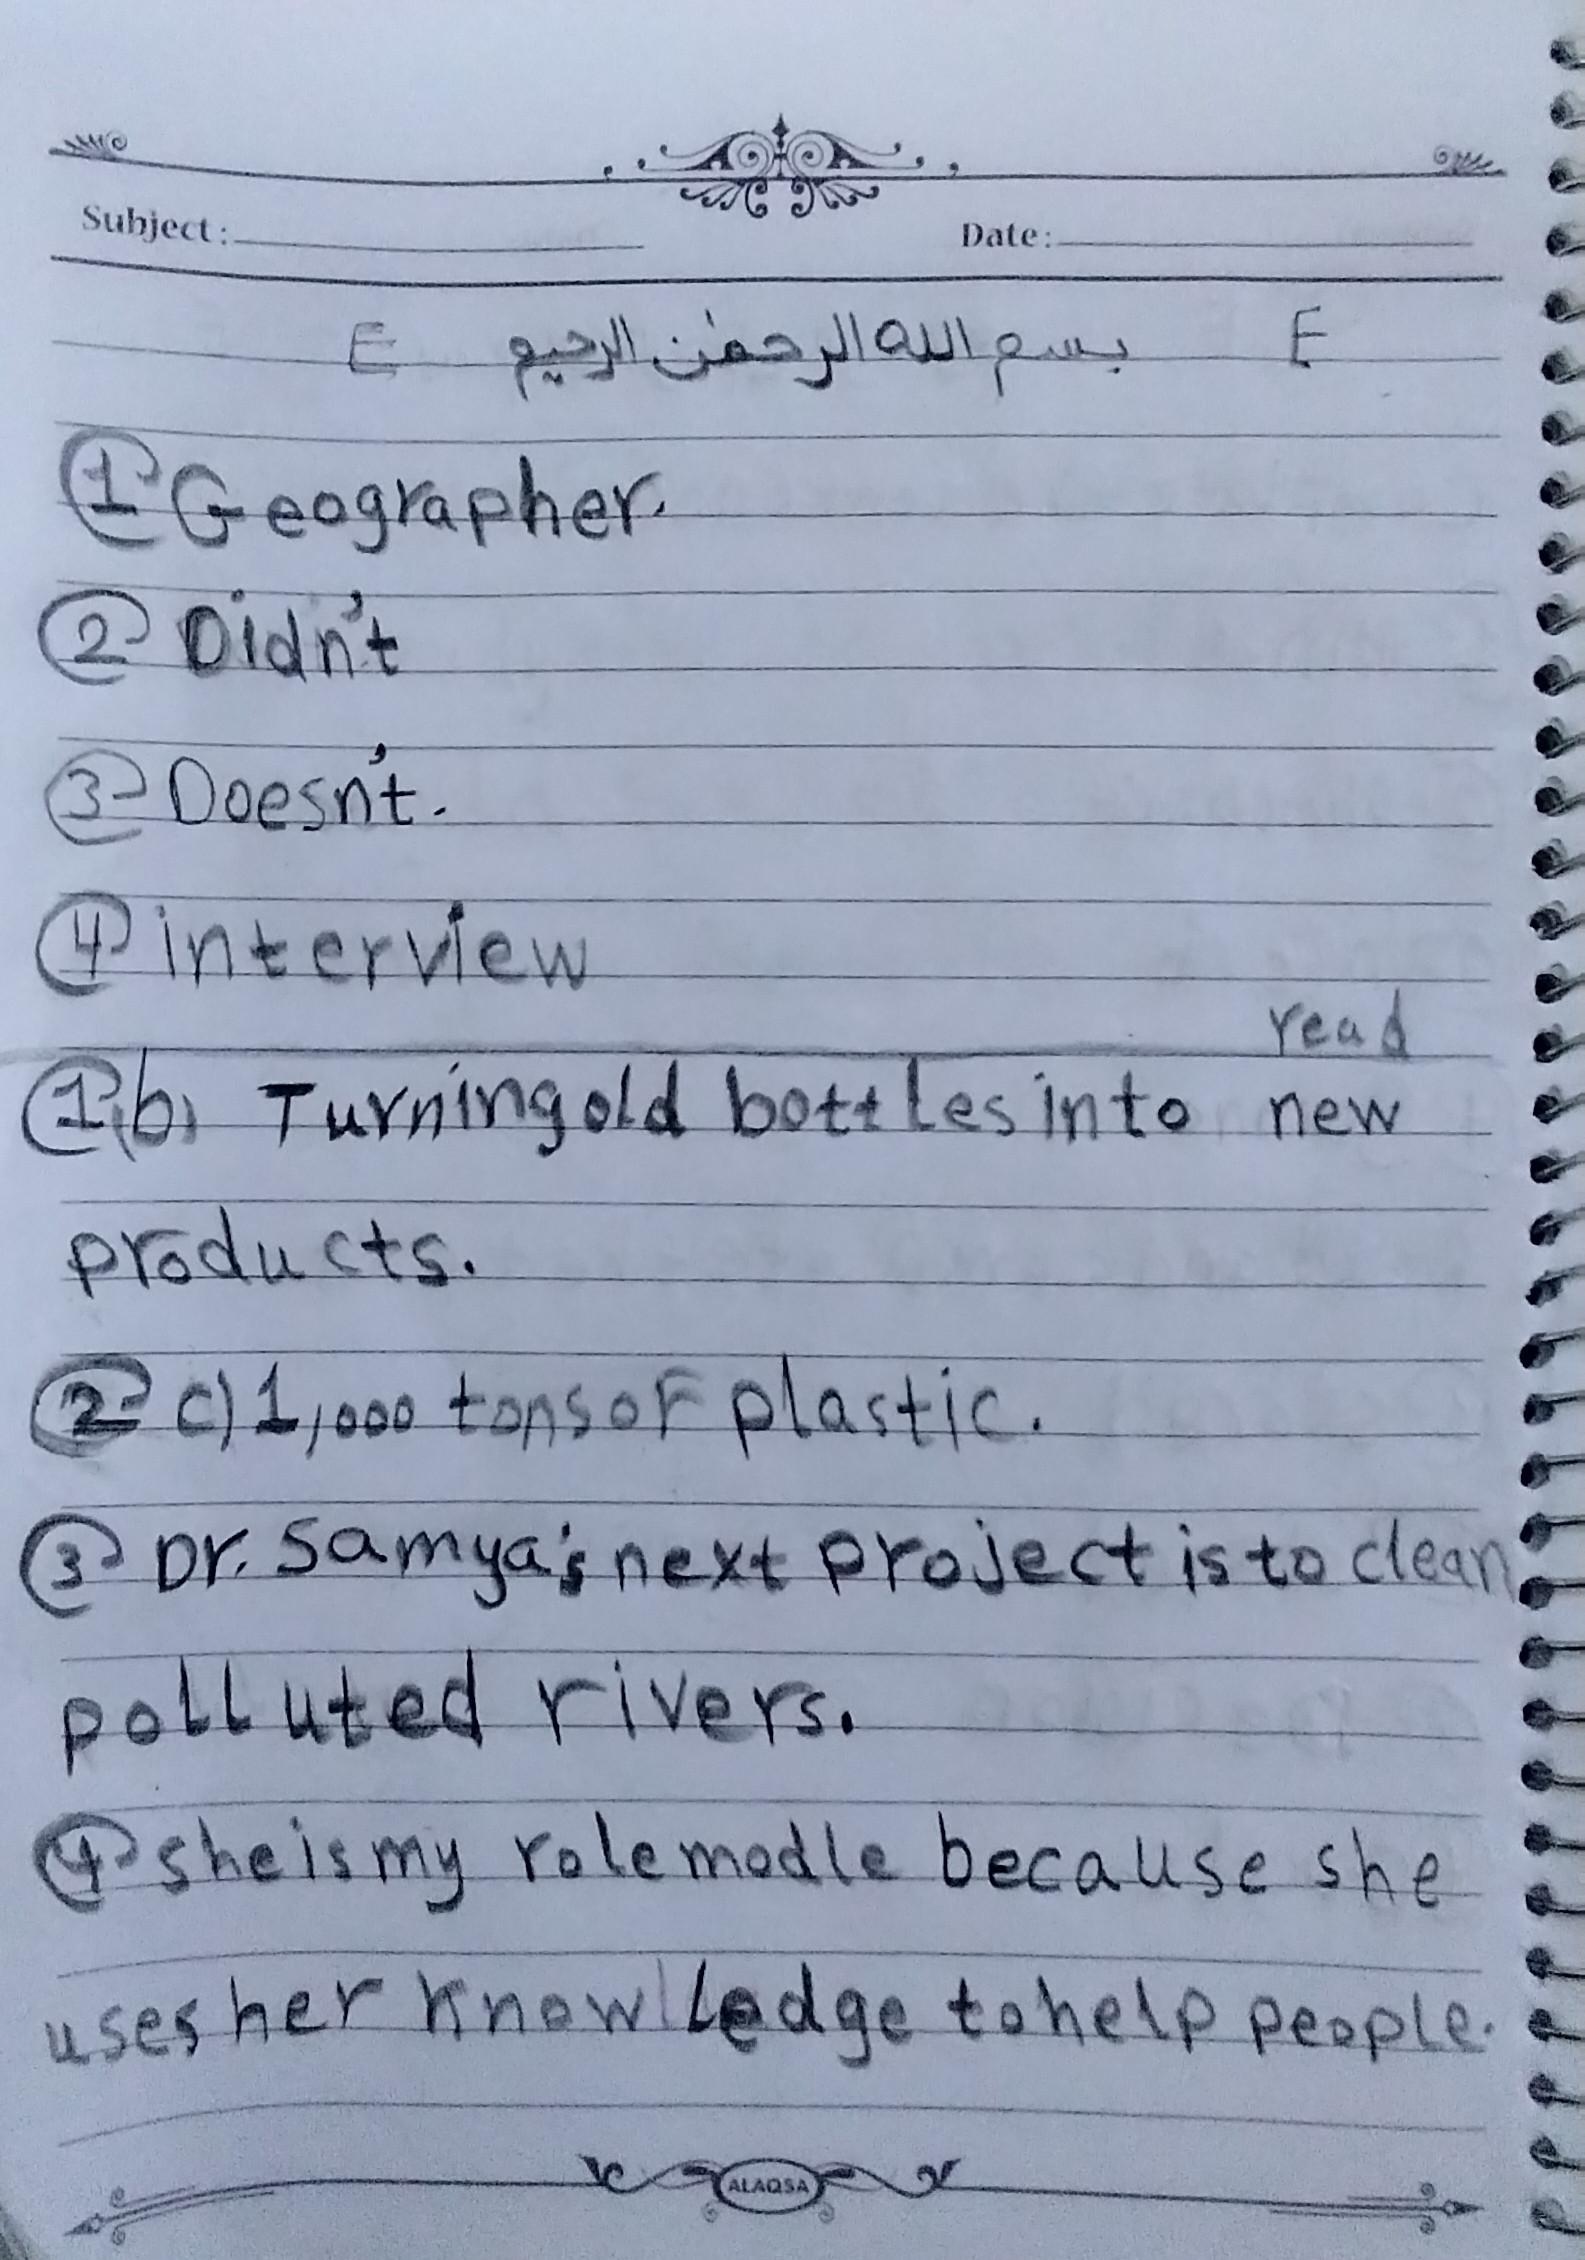 Subject: Date:
E بسم الله الرحمن الرحيم E
1 Geographer.
2 Didn't
3 Doesn't.
4 interview
read
1,b) Turning old bottles into new
products.
2 c) 1,000 tons of plastic.
3 Dr. Samya's next project is to clean
polluted rivers.
4 she is my role modle because she
uses her knowlledge to help people.
ALAQSA